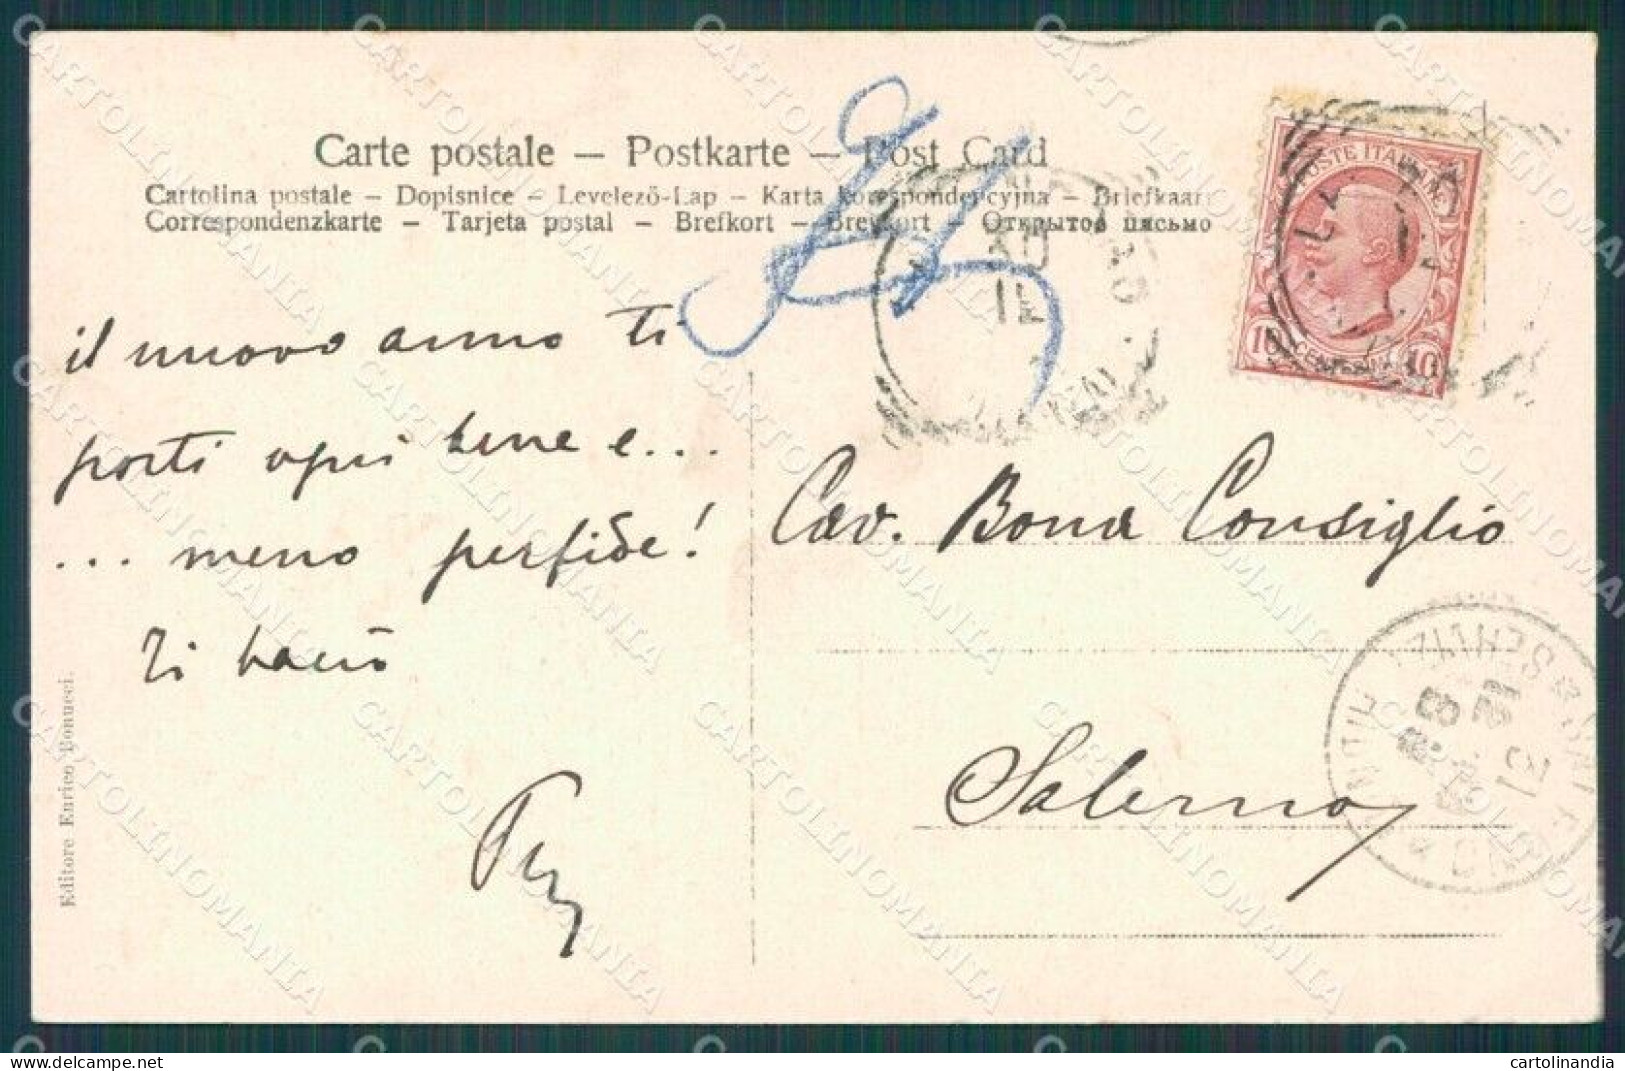 Carte postale – Postkarte – Post Card
Cartolina postale – Dopisnice – Levelező-Lap – Karta korespondencyjna – Briefkaart
Correspondenzkarte – Tarjeta postal – Brefkort – Brevkort – Открытое письмо
POSTE ITALIANE
10 CENT. 10
il nuovo anno ti
porti ogni bene e...
... meno perfide!
Ti bacio
Cav. Bona Consiglio
Salerno
Editore Enrico Bonucci.
CARTOLINOMANIA
delcampe.net
cartolinandia